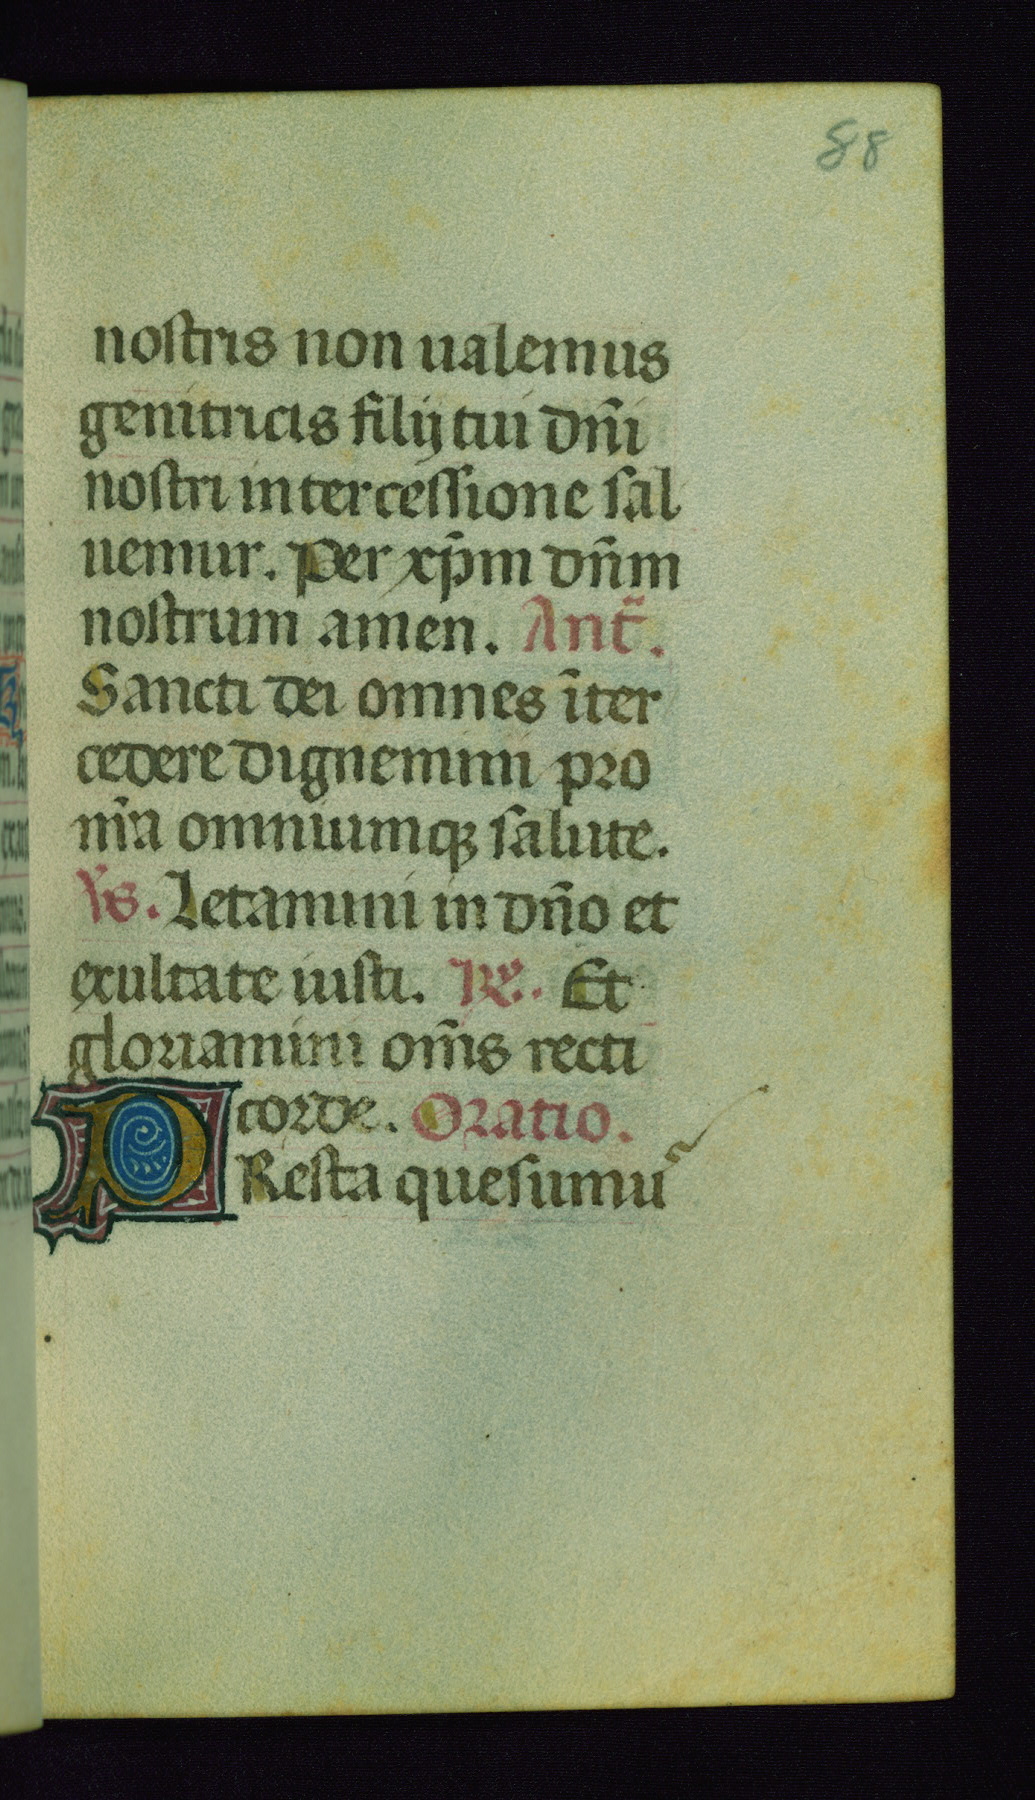 88
nostris non ualemus
genitricis filij tui dñi
nostri intercessione sal
uemur. Per xp̄m dñm
nostrum amen. Ant̃.
Sancti dei omnes īter
cedere dignemini pro
nr̄a omniumqꝫ salute.
V̓s. Letamini in dño et
exultate iusti. R̓. Et
gloriamini om̄s recti
corde. Oratio.
PResta quesumu᷒